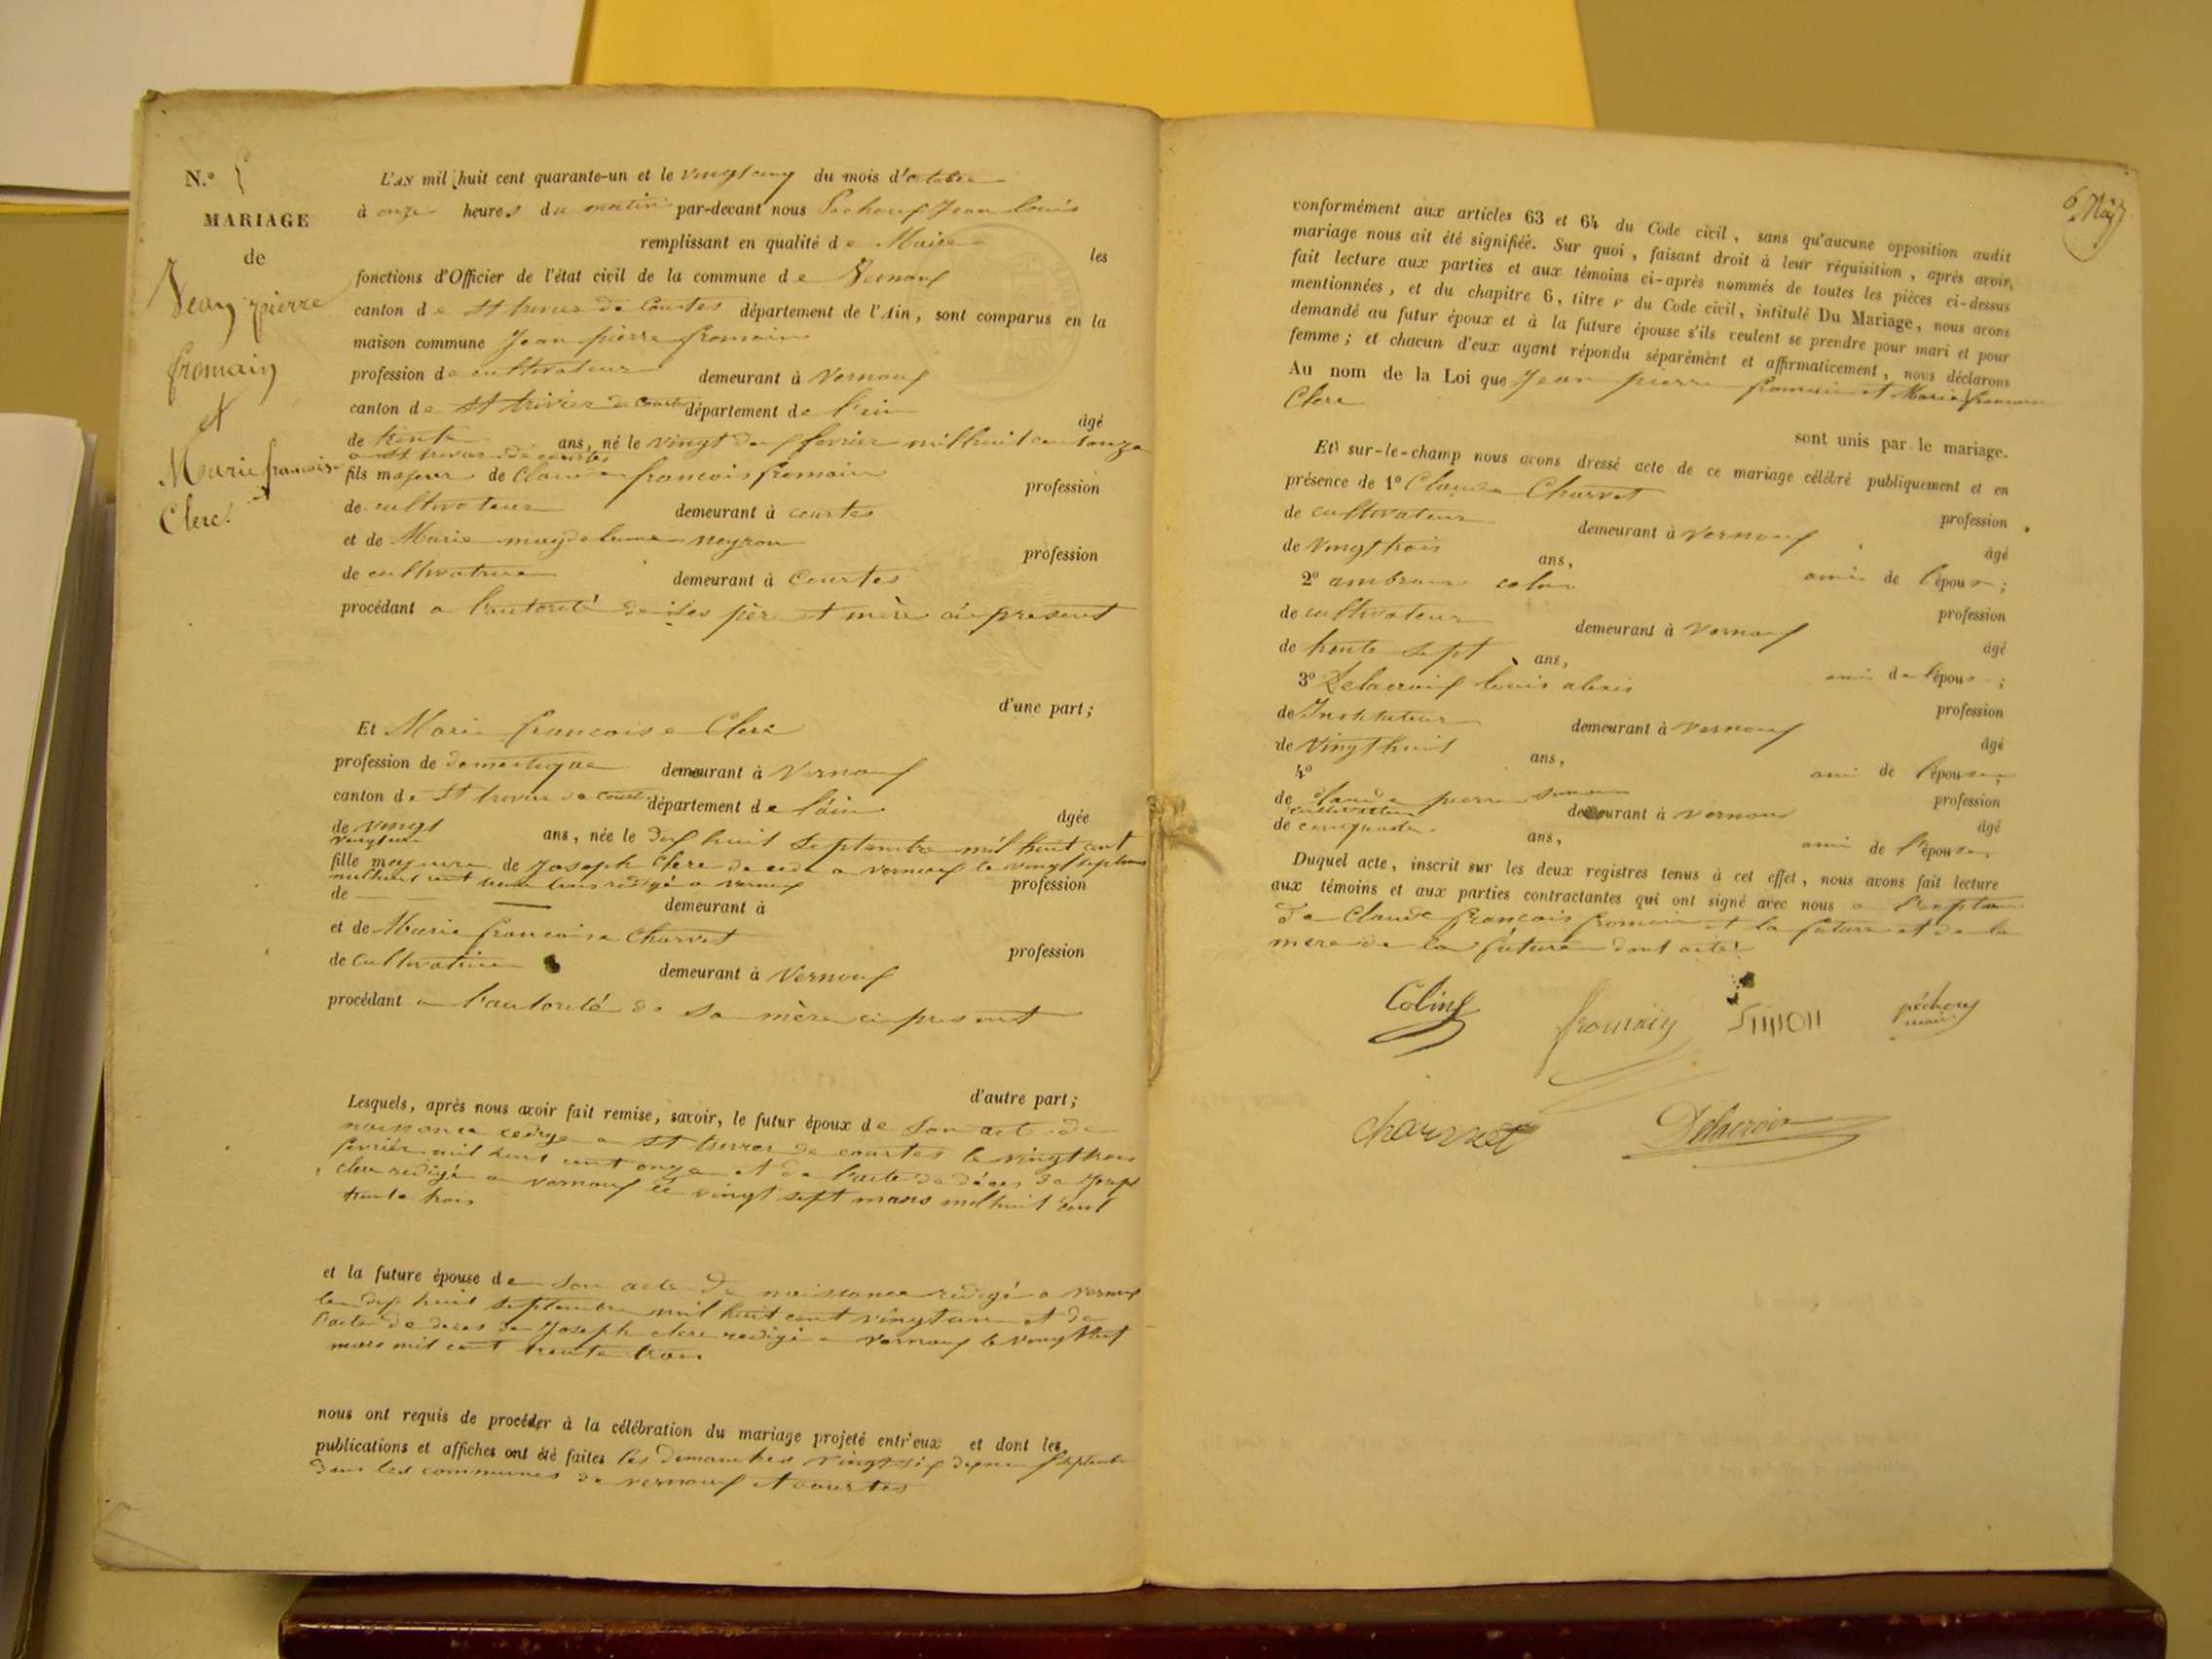 N.° 5
MARIAGE
de
Jean pierre
fromain
et
Marie francoise
Clerc
L'AN mil huit cent quarante-un et le vingt cinq du mois d'octobre
à onze heures du matin par-devant nous Pechoux Jean louis
remplissant en qualité de Maire les
fonctions d'Officier de l'état civil de la commune de Vernoux
canton de St trivier de Courtes département de l'Ain, sont comparus en la
maison commune Jean pierre fromain
profession de cultivateur demeurant à Vernoux
canton de St trivier de Courtes département de l'ain âgé
de trente ans, né le vingt deux fevrier mil huit cent onze
a St trivier de courtes
fils majeur de Claude francois fromain profession
de cultivateur demeurant à courtes
et de Marie magdeleine neyron profession
de cultivatrice demeurant à Courtes
procédant a l'autorité de ses père et mère ci present
d'une part;
Et Marie francoise Clerc
profession de domestique demeurant à Vernoux
canton de St trivier de Courtes département de l'ain âgée
de vingt ans, née le dix huit Septembre mil huit cent
vingt un
fille majeure de Joseph Clerc decede a vernoux le vingt sept mars
mil huit cent trente trois redigé a vernoux profession
de demeurant à
et de Marie francoise Charvet profession
de cultivatrice demeurant à Vernoux
procédant a l'autorité de sa mère ci present
d'autre part;
Lesquels, après nous avoir fait remise, savoir, le futur époux de son acte de
naissance redigé a St trivier de courtes le vingt trois
fevrier mil huit cent onze et de l'acte de déces de Joseph
clerc redigé a vernoux le vingt sept mars mil huit cent
trente trois
et la future épouse de son acte de naissance redigé a vernoux
le dix huit septembre mil huit cent vingt un et de
l'acte de deces de Joseph clerc redigé a vernoux le vingt sept
mars mil cent trente trois
nous ont requis de procéder à la célébration du mariage projeté entr'eux et dont les
publications et affiches ont été faites les dimanches vingt six dix neuf septembre
dans les communes de vernoux et courtes
conformément aux articles 63 et 64 du Code civil, sans qu'aucune opposition audit
mariage nous ait été signifiée. Sur quoi, faisant droit à leur réquisition, après avoir,
fait lecture aux parties et aux témoins ci-après nommés de toutes les pièces ci-dessus
mentionnées, et du chapitre 6, titre v du Code civil, intitulé Du Mariage, nous avons
demandé au futur époux et à la future épouse s'ils veulent se prendre pour mari et pour
femme; et chacun d'eux ayant répondu séparément et affirmativement, nous déclarons
Au nom de la Loi que Jean pierre fromain et Marie francoise
Clerc
sont unis par le mariage.
Et sur-le-champ nous avons dressé acte de ce mariage célébré publiquement et en
présence de 1° Claude Charvet profession
de cultivateur demeurant à vernoux âgé
de vingt trois ans, ami de l'époux;
2° ambroise colin profession
de cultivateur demeurant à Vernoux âgé
de trente sept ans, ami de l'époux;
3° Delacroix louis alexis profession
de Instituteur demeurant à vernoux âgé
de vingt huit ans, ami de l'épouse;
4°
de claude pierre simon profession
cultivateur demeurant à vernoux
de cinquante ans, âgé ami de l'épouse
Duquel acte, inscrit sur les deux registres tenus à cet effet, nous avons fait lecture
aux témoins et aux parties contractantes qui ont signé avec nous a l'exception
de Claude francois fromain et la future et de la
mere de la future dont acte
Colin fromain Simon péchoux
maire
charvet Delacroix